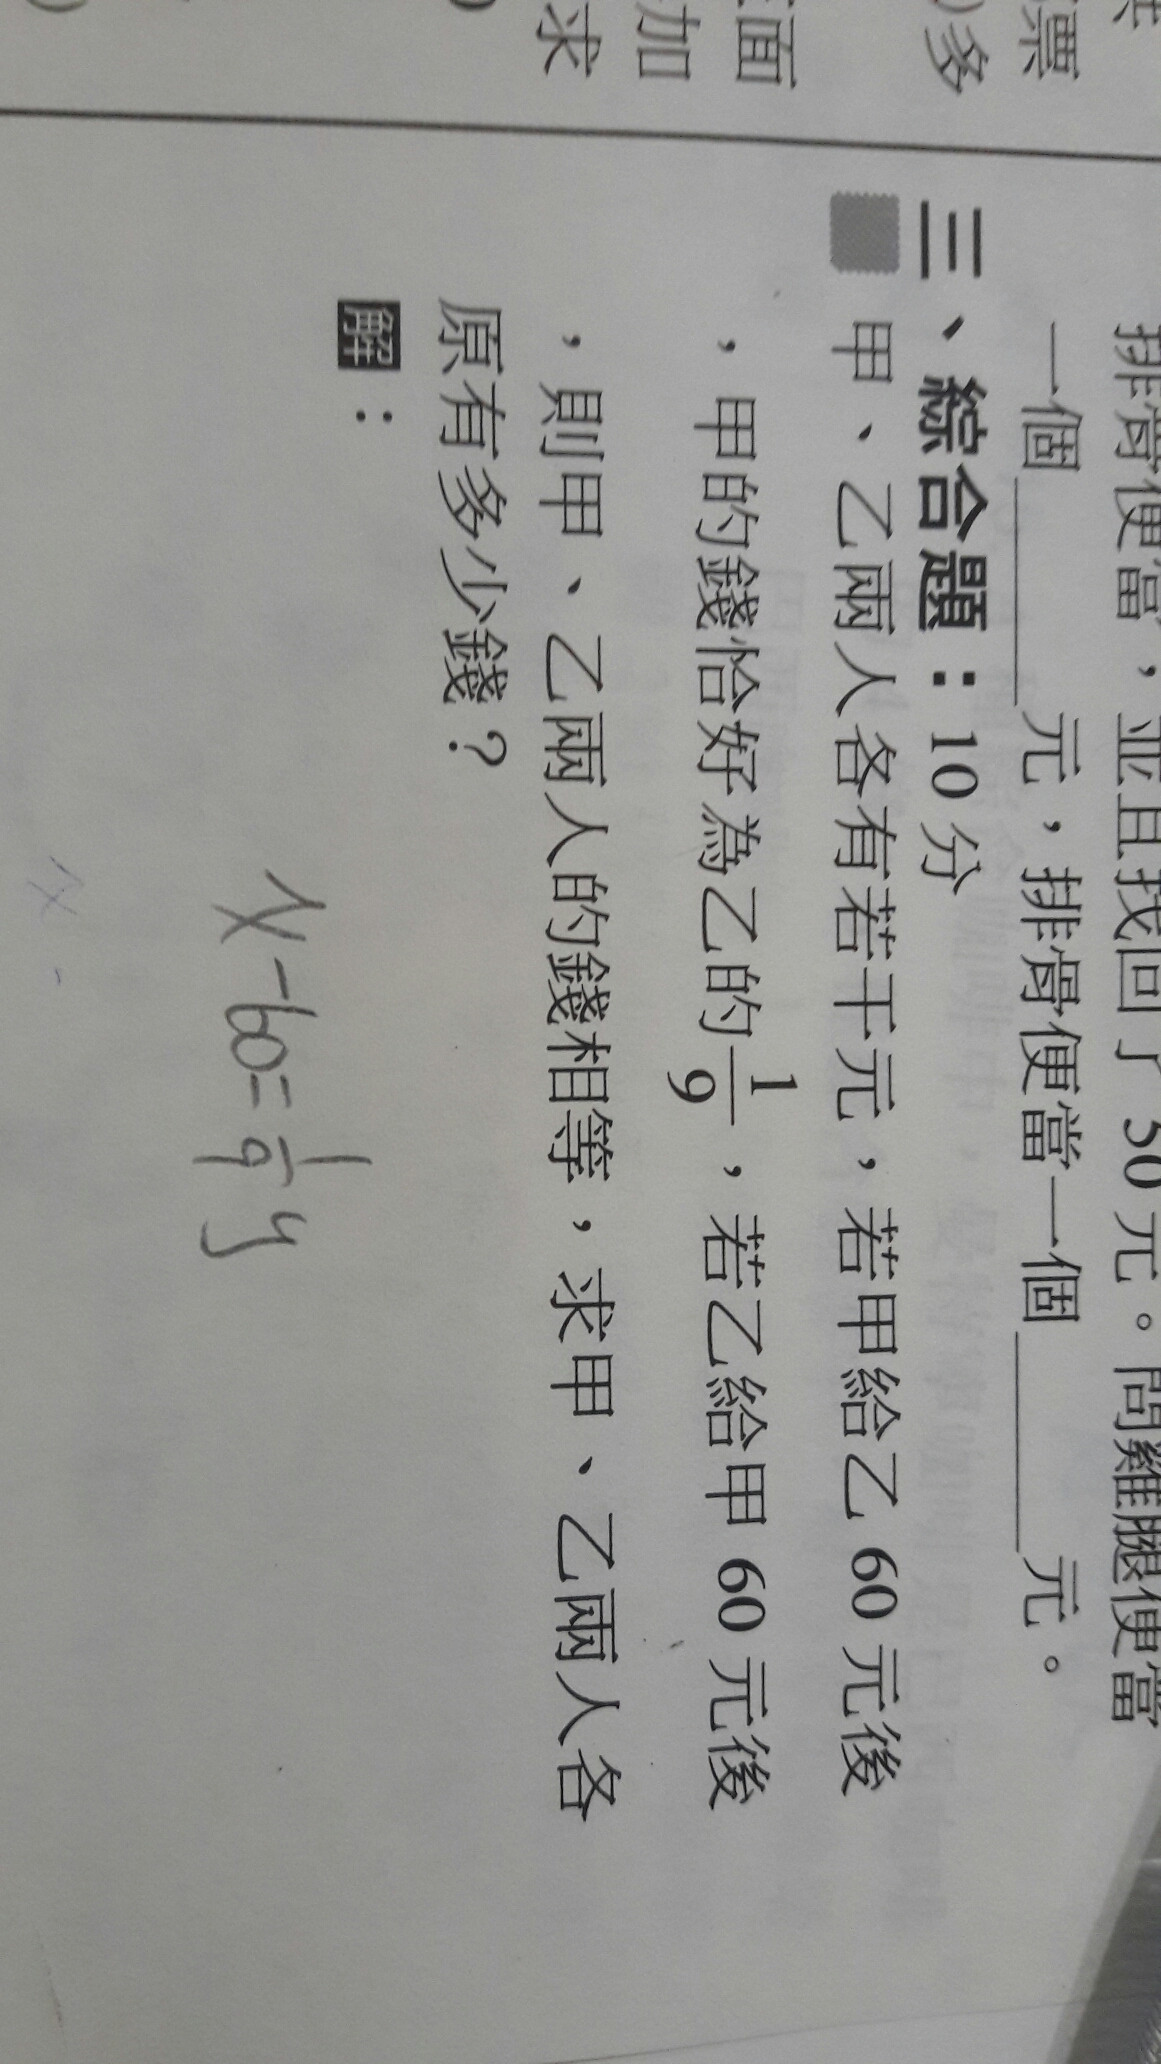 票
)多
面
加
求
排骨便當，並且找回了 50 元。問雞腿便當
一個______元，排骨便當一個______元。
三、綜合題：10 分
甲、乙兩人各有若干元，若甲給乙 60 元後
，甲的錢恰好為乙的 1/9，若乙給甲 60 元後
，則甲、乙兩人的錢相等，求甲、乙兩人各
原有多少錢？
解：
x-60=1/9 y
x -